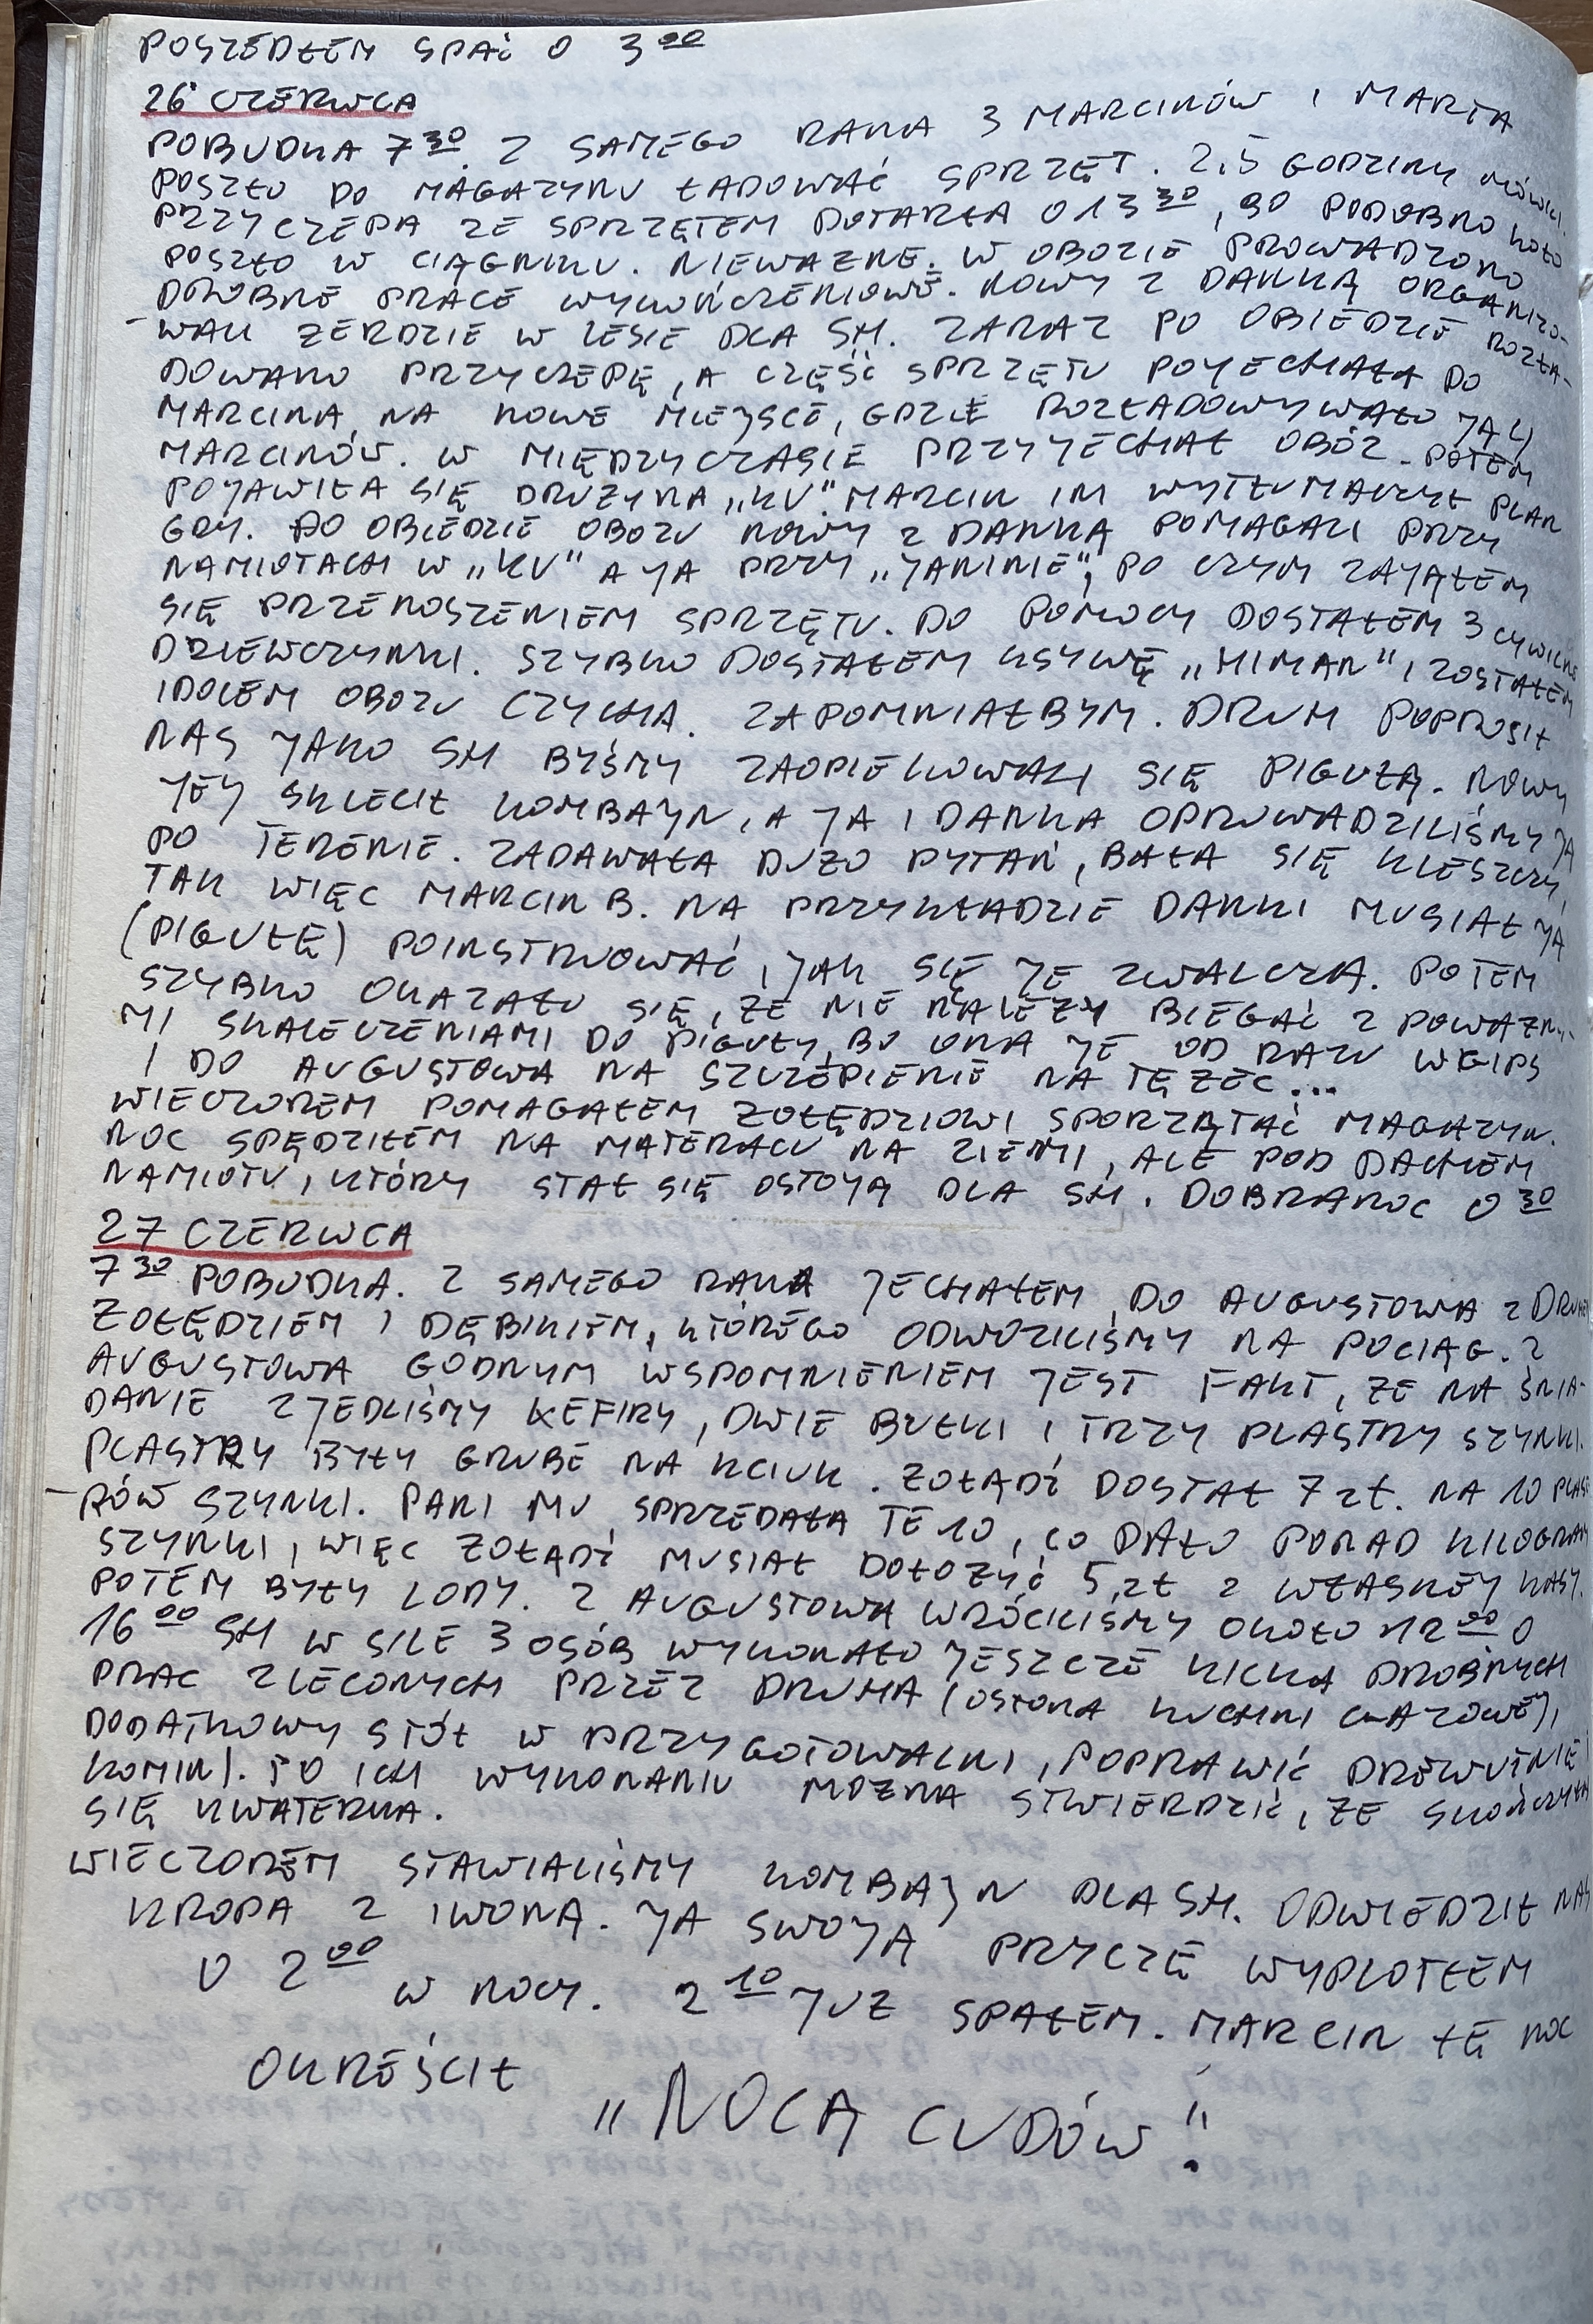 POSZEDŁEM SPAĆ O 3 00
26 CZERWCA
POBUDKA 7 30. Z SAMEGO RANA 3 MARCINÓW I MARTA
POSZŁO DO MAGAZYNU ŁADOWAĆ SPRZĘT. 2,5 GODZINY MÓWILI.
PRZYCZEPA ZE SPRZĘTEM DOTARŁA O 13 30, BO PODOBNO KOŁO
POSZŁO W CIĄGNIKU. NIEWAŻNE. W OBOZIE PROWADZONO
DROBNE PRACE WYKOŃCZENIOWE. NOWY Z DANKĄ ORGANIZO-
-WALI ŻERDZIE W LESIE DLA SH. ZARAZ PO OBIEDZIE ROZŁA-
DOWANO PRZYCZEPĘ, A CZĘŚĆ SPRZĘTU POJECHAŁA DO
MARCINA, NA NOWE MIEJSCE, GDZIE ROZŁADOWYWAŁO JĄ
MARCINÓW. W MIĘDZYCZASIE PRZYJECHAŁ OBÓZ. POTEM
POJAWIŁA SIĘ DRUŻYNA „KV". MARCIN IM WYTŁUMACZYŁ PLAN
GRY. PO OBIEDZIE OBOZU NOWY Z DANKĄ POMAGALI PRZY
NAMIOTACH W „KV" A JA PRZY „JANINIE", PO CZYM ZAJĄŁEM
SIĘ PRZENOSZENIEM SPRZĘTU. DO POMOCY DOSTAŁEM 3 CYWILNE
DZIEWCZYNKI. SZYBKO DOSTAŁEM KSYWĘ „HIMAN" I ZOSTAŁEM
IDOLEM OBOZU CZYCHA. ZAPOMNIAŁBYM. DRUH POPROSIŁ
NAS JAKO SH BYŚMY ZAOPIEKOWALI SIĘ PIGUŁĄ. NOWY
JEJ SKLECIŁ KOMBAJN, A JA I DANKA OPROWADZILIŚMY JĄ
PO TERENIE. ZADAWAŁA DUŻO PYTAŃ, BAŁA SIĘ KLESZCZY,
TAK WIĘC MARCIN B. NA PRZYKŁADZIE DANKI MUSIAŁ JĄ
(PIGUŁĘ) POINSTRUOWAĆ, JAK SIĘ JE ZWALCZA. POTEM
SZYBKO OKAZAŁO SIĘ, ŻE NIE NALEŻY BIEGAĆ Z POWAŻNY-
MI SKALECZENIAMI DO PIGUŁY, BO ONA JE OD RAZU W GIPS
I DO AUGUSTOWA NA SZCZEPIENIE NA TĘŻEC...
WIECZOREM POMAGAŁEM ŻOŁĘDZIOWI SPORZĄTAĆ MAGAZYN.
NOC SPĘDZIŁEM NA MATERACU NA ZIEMI, ALE POD DACHEM
NAMIOTU, KTÓRY STAŁ SIĘ OSTOJĄ DLA SH. DOBRANOC 0 30
27 CZERWCA
7 30 POBUDKA. Z SAMEGO RANA JECHAŁEM DO AUGUSTOWA Z DRUHEM
ŻOŁĘDZIEM I DĘBIKIEM, KTÓREGO ODWOZILIŚMY NA POCIĄG. Z
AUGUSTOWA GODNYM WSPOMNIENIEM JEST FAKT, ŻE NA ŚNIA-
DANIE ZJEDLIŚMY KEFIRY, DWIE BUŁKI I TRZY PLASTRY SZYNKI.
PLASTRY BYŁY GRUBE NA KCIUK. ŻOŁĄDŹ DOSTAŁ 7 ZŁ. NA 10 PLAST
-RÓW SZYNKI. PANI MU SPRZEDAŁA TE 10, CO DAŁO PONAD KILOGRAM
SZYNKI, WIĘC ŻOŁĄDŹ MUSIAŁ DOŁOŻYĆ 5 ZŁ Z WŁASNEJ KASY.
POTEM BYŁY LODY. Z AUGUSTOWA WRÓCILIŚMY OKOŁO 12 00 O
16 00 SH W SILE 3 OSÓB WYKONAŁO JESZCZE KILKA DROBNYCH
PRAC ZLECONYCH PRZEZ DRUHA (OSŁONA KUCHNI GAZOWEJ,
DODATKOWY STÓŁ W PRZYGOTOWALNI, POPRAWIĆ DREWUTNIĘ,
KOMIN). PO ICH WYKONANIU MOŻNA STWIERDZIĆ, ŻE SKOŃCZYŁA
SIĘ KWATERKA.
WIECZOREM STAWIALIŚMY KOMBAJN DLA SH. ODWIEDZIŁ NAS
KROPA Z IWONĄ. JA SWOJĄ PRYCZĘ WYPLOTŁEM
O 2 00 W NOCY. 2 10 JUŻ SPAŁEM. MARCIN TĘ NOC
OKREŚLIŁ
„NOCĄ CUDÓW"!